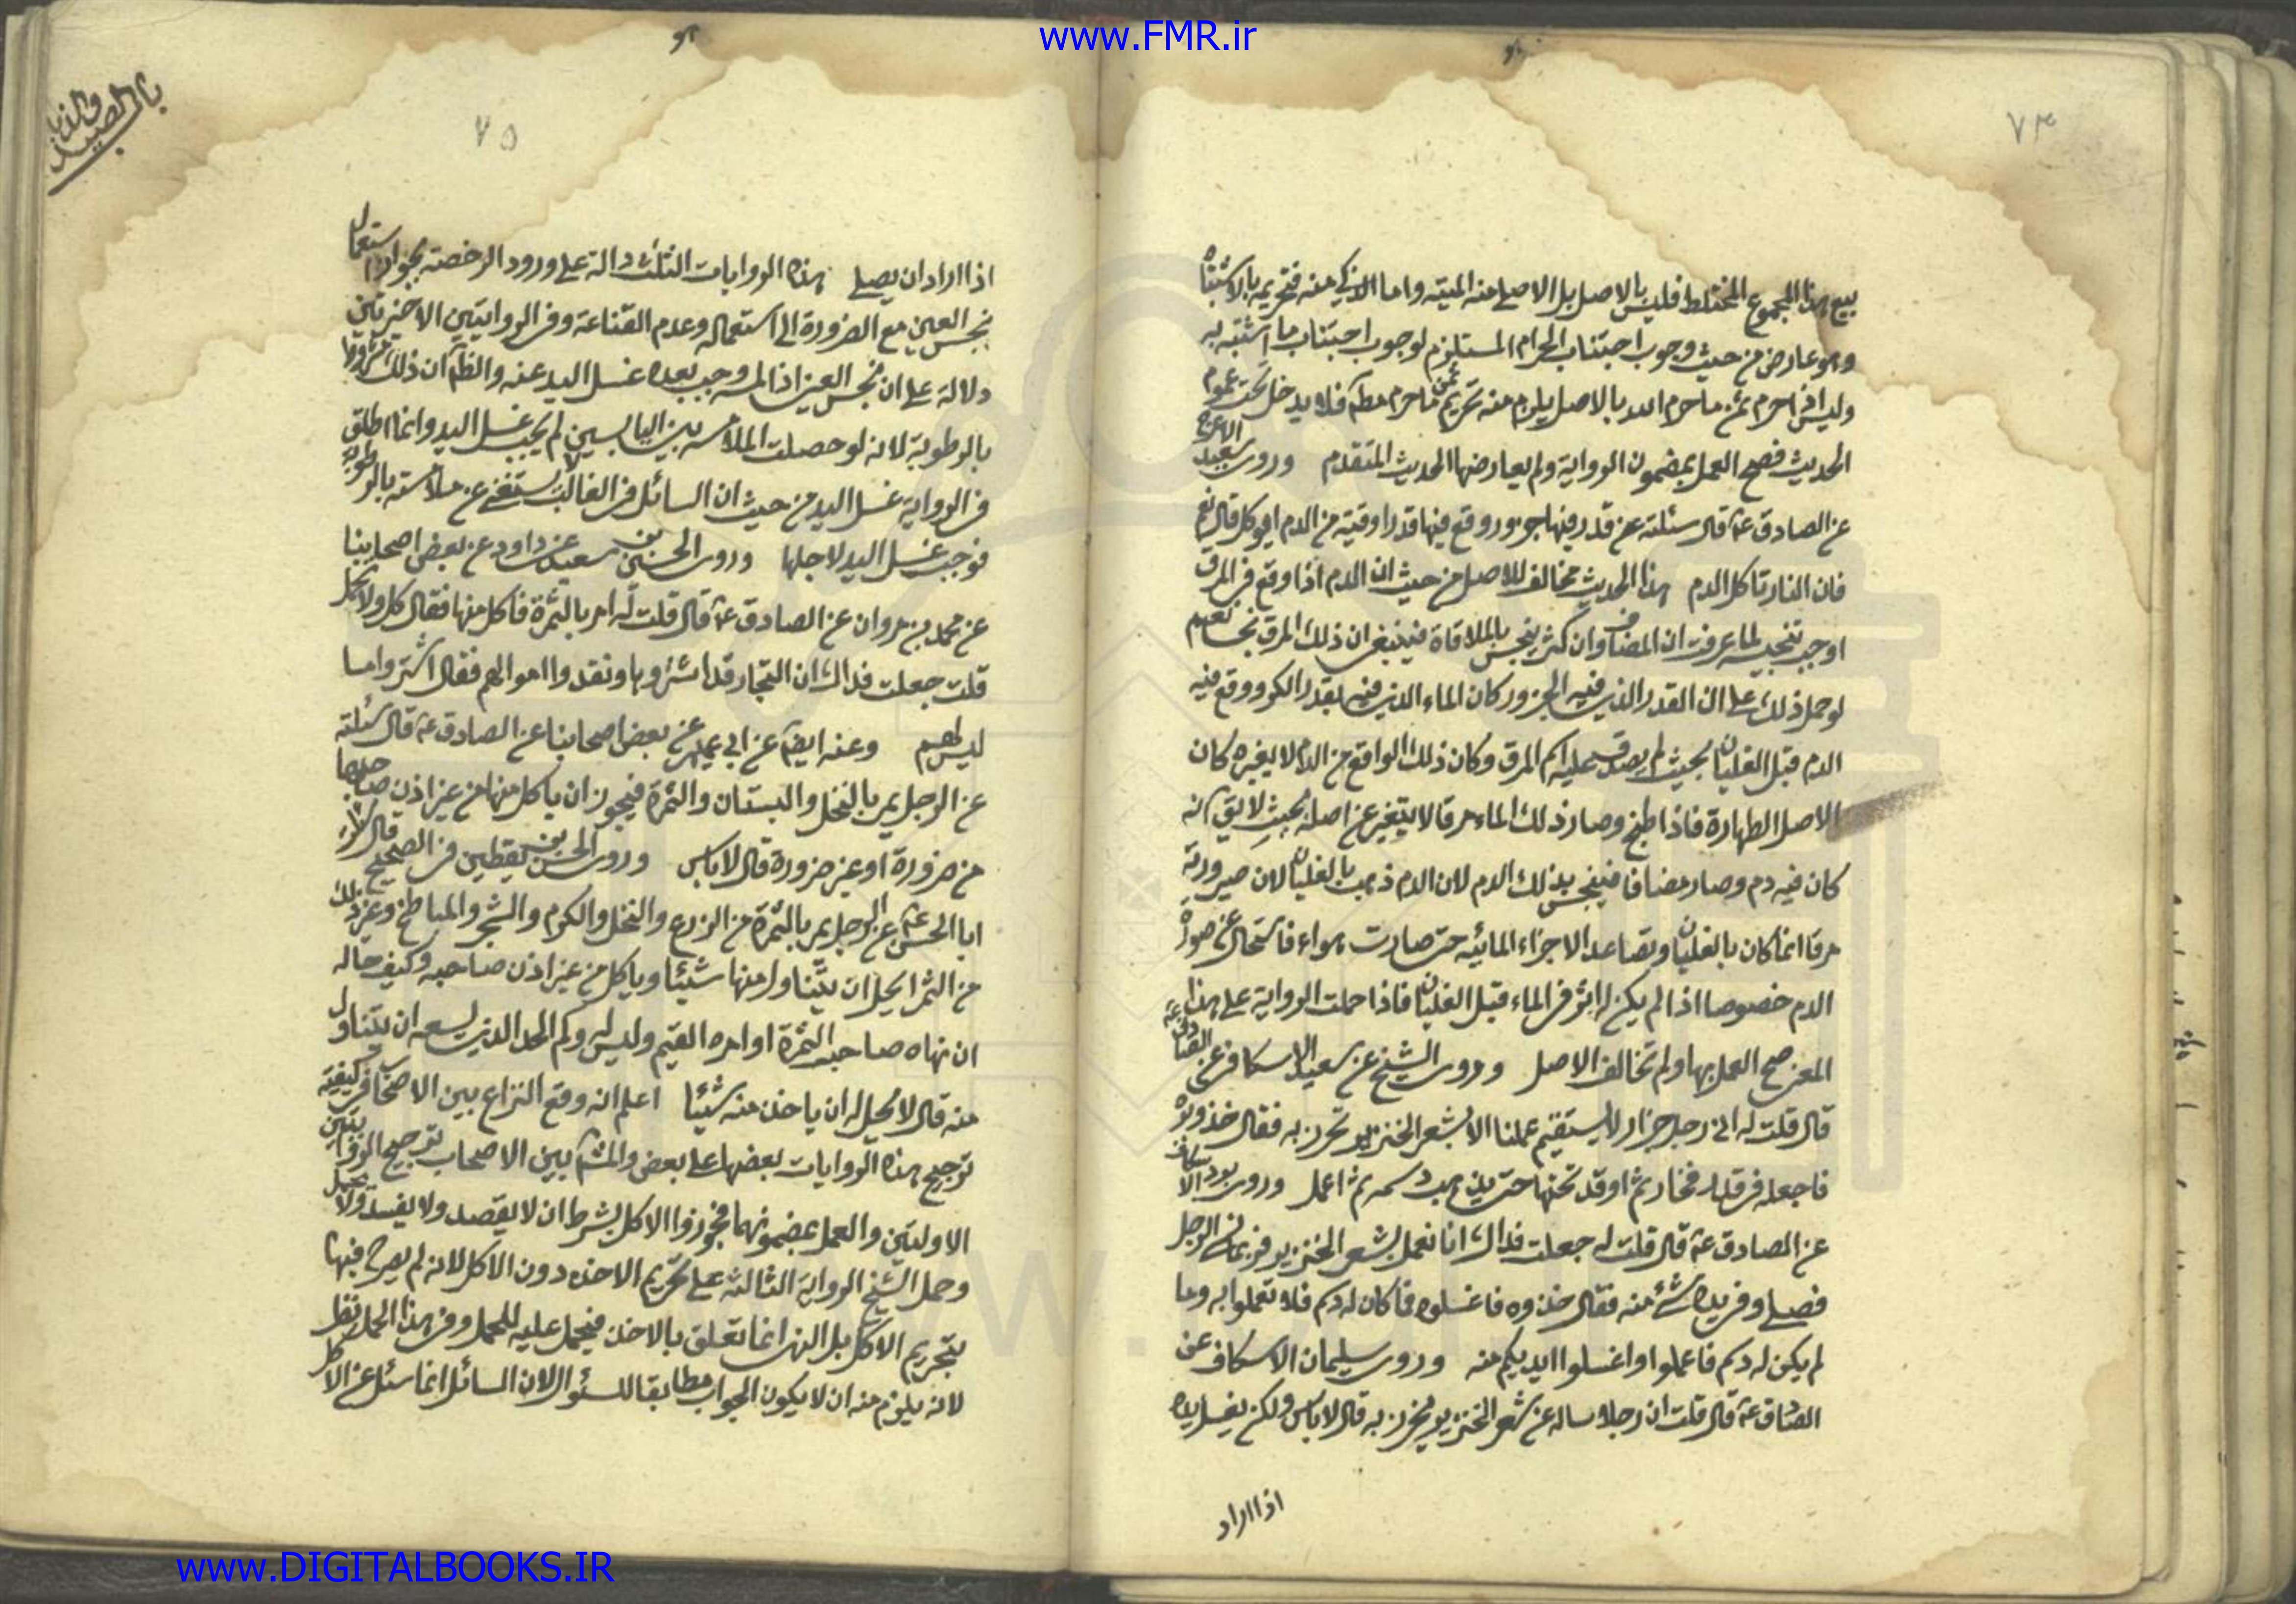 www.FMR.ir
٧٤
بيع هذا المجموع المختلط فليس بالاصل بل الاصلے منه الميتة واما الذكي منه فتحريمه بالاشتباه
وهو عارض من حيث وجوب اجتناب الحرام المستلزم لوجوب اجتناب ما اشتبه به
وليس اذا حرم ثمن ما حرم الله بالاصل يلزم منه تحريم ثمن ما حرم مطم فلا يدخل تحت عموم
الحديث فصح العمل بمضمون الرواية ولم يعارضها الحديث المتقدم وروى سعيد الاعرج
عن الصادق ع قال سئلته عن قدر فيها جزور وقع فيها قدر اوقية من الدم ايوكل قال نعم
فان النار تاكل الدم هذا الحديث مخالف للاصل من حيث ان الدم اذا وقع في المرق
اوجب تنجيسه لما عرفت ان المضاف وان كثر ينجس بالملاقاة فينبغي ان ذلك المرق نجس نعم
لو حمل ذلك على ان القدر الذي فيه الجزور كان الماء الذي فيه بقدر الكر ووقع فيه
الدم قبل الغليان بحيث لم يصدق عليه اسم المرق وكان ذلك الواقع من الدم لا يغيره كان
الاصل الطهارة فاذا طبخ وصار ذلك الماء مرقا لا يتغير عن اصله بحيث لا يق انه
كان فيه دم وصار مضافا فينجس بذلك الدم لان الدم ذهب بالغليان لان صيرورته
مرقا انما كان بالغليان وتصاعد الاجزاء المائيه حتى صارت هواء فاستحال عن صورة
الدم خصوصا اذا لم يكن له اثر في الماء قبل الغليان فاذا حملت الرواية على هذا
المعنى صح العمل بها ولم تخالف الاصل وروى الشيخ عن سعيد الاسكاف عن الصادق ع
قال قلت له انى رجل خراز لا يستقيم عملنا الا بشعر الخنزير نخرز به فقال خذ وبره
فاجعله في قدر فخار ثم اوقد تحتها حتى يذهب دسمه ثم اعمل وروى برد الاسكاف
عن الصادق ع قال قلت له جعلت فداك انا نعمل بشعر الخنزير فربما نسى الرجل
فصلے وفي يده شئ منه فقال خذوه فاغسلوه فما كان له دسم فلا تعملوا به وما
لم يكن له دسم فاعملوا واغسلوا ايديكم منه وروى سليمان الاسكاف عن
الصادق ع قال قلت ان رجلا ساله عن شعر الخنزير يخرز به قال لا باس ولكن يغسل يده
اذا اراد
٧٥
اذا اراد ان يصلے هذه الروايات الثلث دالة على ورود الرخصة بجواز استعمال
نجس العين مع الضرورة الى استعماله وعدم القناعة وفي الروايتين الاخيرتين
دلالة على ان نجس العين اذا لمسه وجب بعده غسل اليد عنه والظ ان ذلك مشروط
بالرطوبة لانه لو حصلت الملامسه بين اليابسين لم يجب غسل اليد وانما اطلق
في الرواية غسل اليد من حيث ان السائل في الغالب لا يستغنى عن ملامسته بالرطوبة
فوجب غسل اليد لاجلها وروى الحسين بن سعيد عن داود عن بعض اصحابنا
عن محمد بن مروان عن الصادق ع قال قلت له امر بالثمرة فاكل منها فقال كل ولا تحمل
قلت جعلت فداك ان التجار قد اشتروها ونقدوا اموالهم فقال اشتروا ما
ليس لهم وعنه ايضا عن ابي عمير عن بعض اصحابنا عن الصادق ع قال سئلته
عن الرجل يمر بالنخل والبستان والثمرة فيجوز ان ياكل منها من غير اذن صاحبها
من ضرورة او غير ضرورة قال لا باس وروى الحسن بن يقطين في الصحيح قال سئلت
ابا الحسن ع عن الرجل يمر بالثمرة من الزرع والنخل والكرم والشجر والمباطخ وغير ذلك
من الثمر ايحل ان يتناول منها شيئا وياكل من غير اذن صاحبه وكيف حاله
ان نهاه صاحب الثمرة او امره القيم وليس له وكم الحد الذي يسعه ان يتناول
منه قال لا يحل له ان ياخذ منه شيئا اعلم انه وقع النزاع بين الاصحاب في كيفية
ترجيح هذه الروايات بعضها على بعض والمشهور بين الاصحاب ترجيح الروايتين
الاوليتين والعمل بمضمونهما فجوزوا الاكل بشرط ان لا يقصد ولا يفسد ولا يحمل
وحمل الشيخ الرواية الثالثة على تحريم الاخذ دون الاكل لانه لم يصرح فيها
بتحريم الاكل بل النهى انما تعلق بالاخذ فيحمل عليه للحمل وفي هذا الحمل نظر
لانه يلزم منه ان لا يكون الجواب مطابقا للسئوال لان السائل انما سئل عن الاكل
www.DIGITALBOOKS.IR